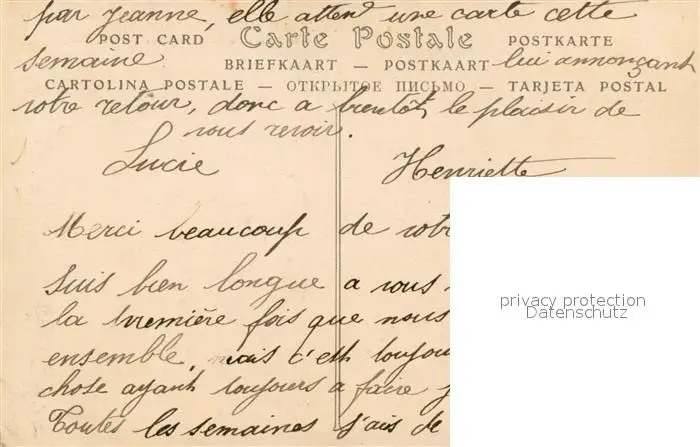 par Jeanne, elle attend une carte cette
POST CARD Carte Postale POSTKARTE
semaine lui annonçant
BRIEFKAART — POSTKAART
CARTOLINA POSTALE — ОТКРЫТОЕ ПИСЬМО — TARJETA POSTAL
votre retour, donc a bientôt le plaisir de
vous revoir.
Lucie Henriette
Merci beaucoup de votr
Suis bien longue a vous
la première fois que nous
ensemble, mais c'est toujou
chose ayant toujours a faire
Toutes les semaines j'ais de
privacy protection
Datenschutz